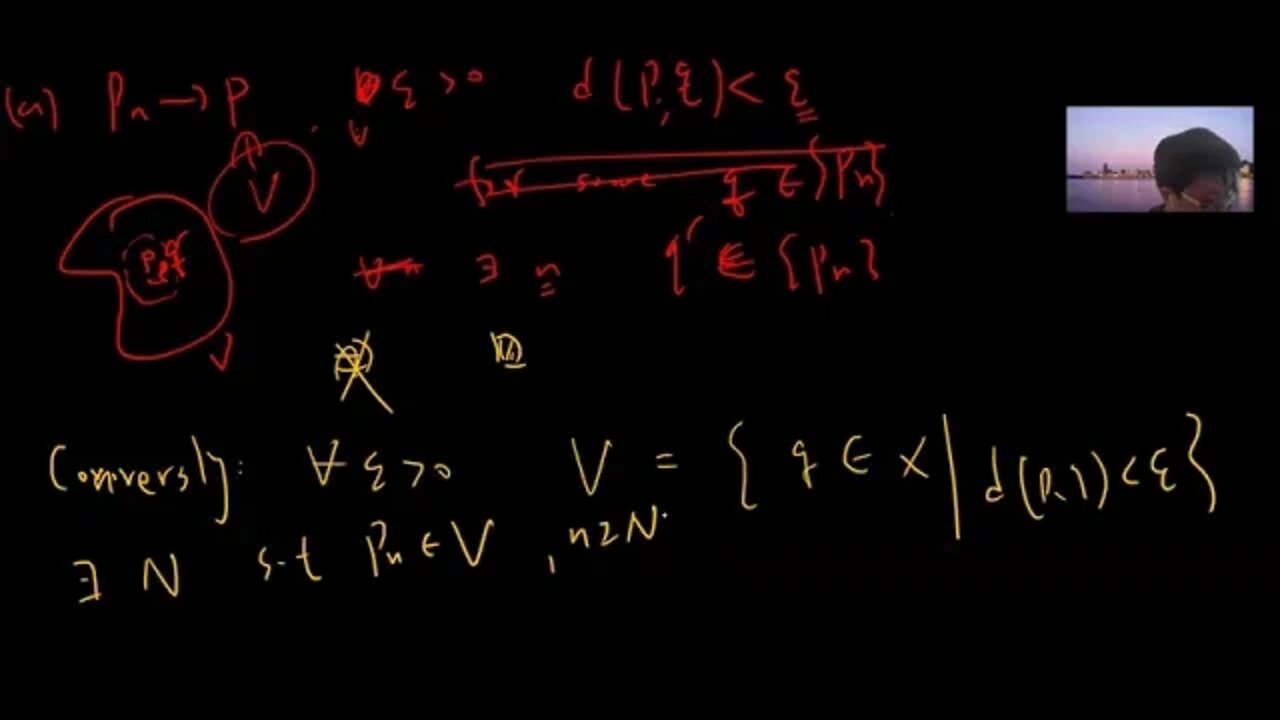 (a) Pn → P ∀ ε > 0 d(P, q) < ε
V for some q ∈ {Pn}
∀n ∃ n q ∈ {Pn}
V
Conversly: ∀ ε > 0 V = { q ∈ X | d(P, q) < ε }
∃ N s.t Pn ∈ V , n ≥ N.